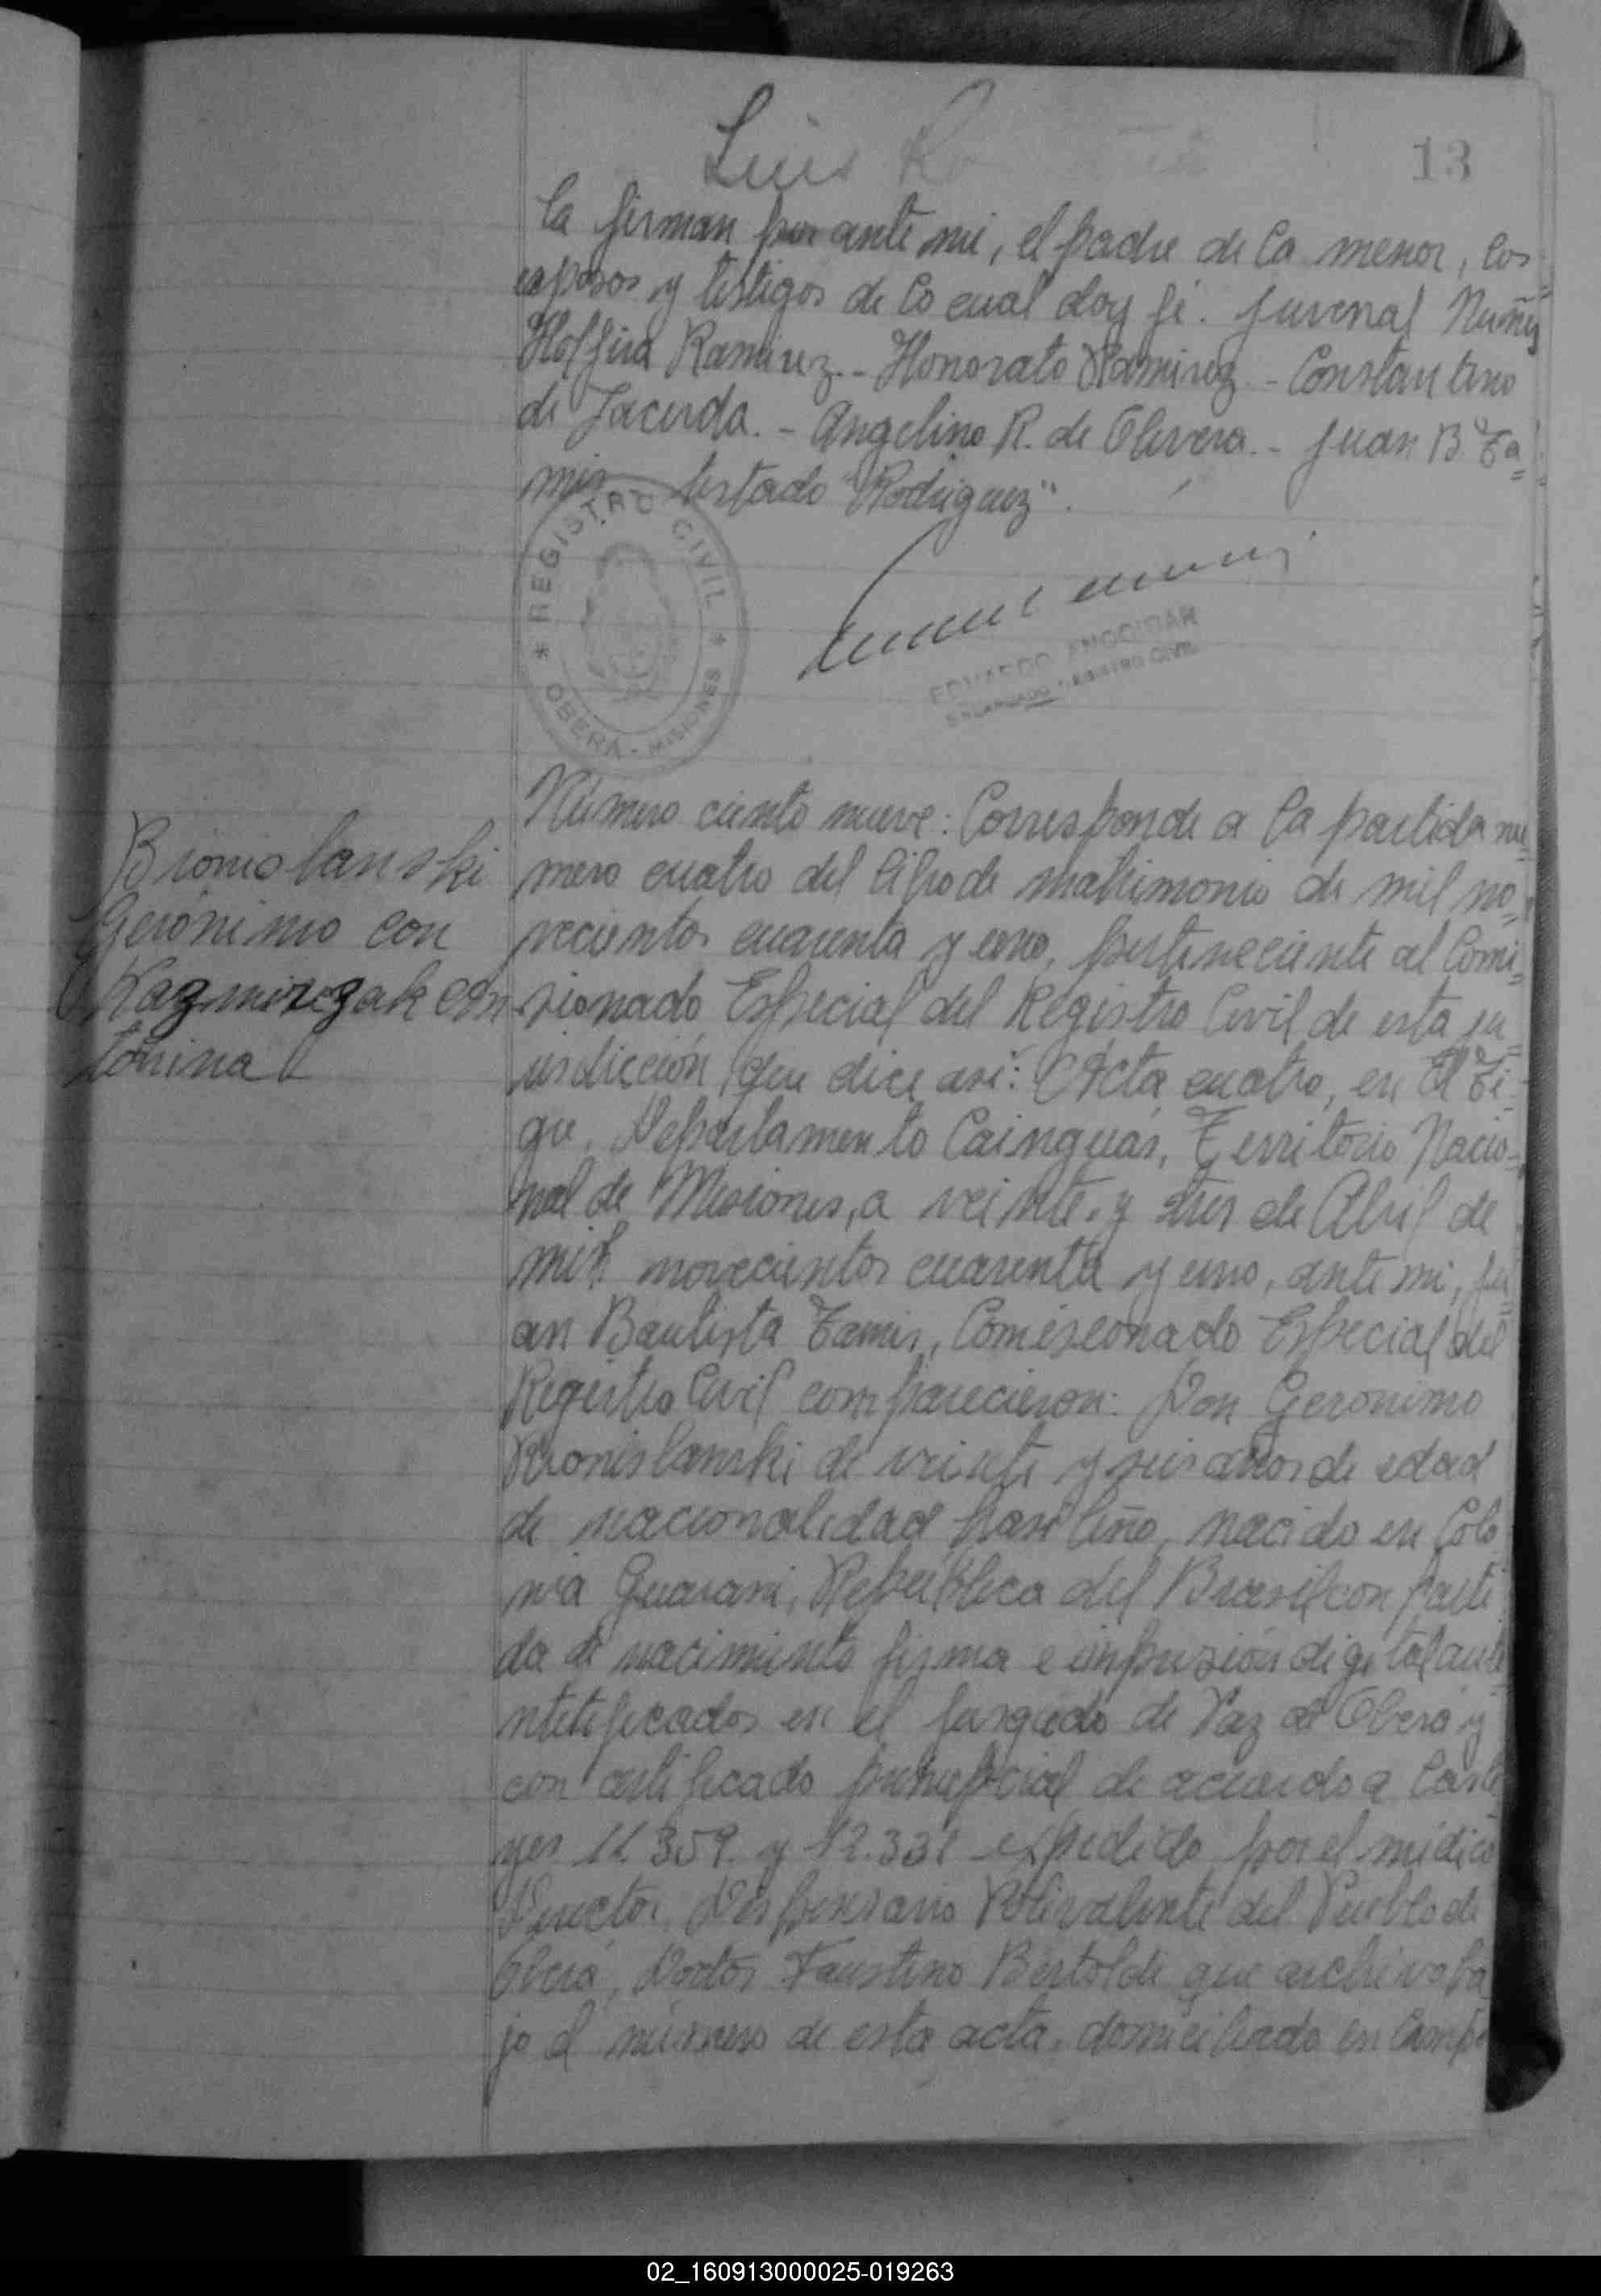 Luis
13
la firman por ante mi, el padre de la menor, los
esposos y testigos de lo cual doy fé. Juvenal Nuñez
Ramirez.- Honorato Ramirez.- Constantino
de Lacerda.- Angelino R. de Olivera.- Juan B. Ta=
mis testado "Rodriguez".
REGISTRO CIVIL
OBERÁ - MISIONES
EDUARDO
ENCARGADO REGISTRO CIVIL
Bronislauski
Gerónimo con
Kazmirczak An
tonina
Número ciento nueve: Corresponde a la partida nú=
mero cuatro del libro de matrimonio de mil no=
vecientos cuarenta y uno, perteneciente al Comi=
sionado Especial del Registro Civil de esta ju=
risdicción, que dice asi: Acta cuatro, en El Ti-
gre, Departamento Cainguás, Territorio Nacio-
nal de Misiones, a veinte y tres de Abril de
mil novecientos cuarenta y uno, ante mi, Ju=
an Bautista Tamis, Comisionado Especial del
Registro Civil comparecieron: Don Geronimo
Bronislauski de veinte y seis años de edad
de nacionalidad brasileño, nacido en Colo
nia Guarani, República del Brasil con parti
da de nacimiento firma e impresión digital aute
ntificados en el Juzgado de Paz de Oberá y
con certificado prenupcial de acuerdo a las le
yes 11.359. y 12.331 expedido por el médico
Director, Dispensario Polivalente del Pueblo de
Oberá, Doctor Faustino Bertoldi que archivo ba
jo el número de esta acta, domiciliado en Campo
02_160913000025-019263